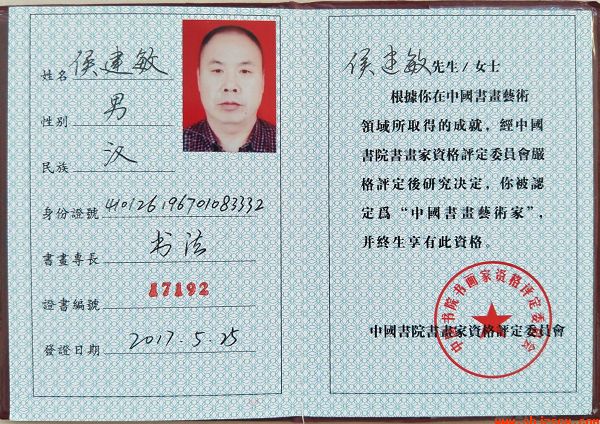 姓名 侯建敏
性别 男
民族 汉
身份證號 410126196701083332
書畫專長 书法
證書編號 17192
發證日期 2017.5.25
侯建敏先生/女士
根據你在中國書畫藝術
領域所取得的成就，經中國
書院書畫家資格評定委員會嚴
格評定後研究決定，你被認
定爲“中國書畫藝術家”，
并终生享有此資格。
中國書院書畫家資格評定委員會
中国书院书画家资格评定委员会